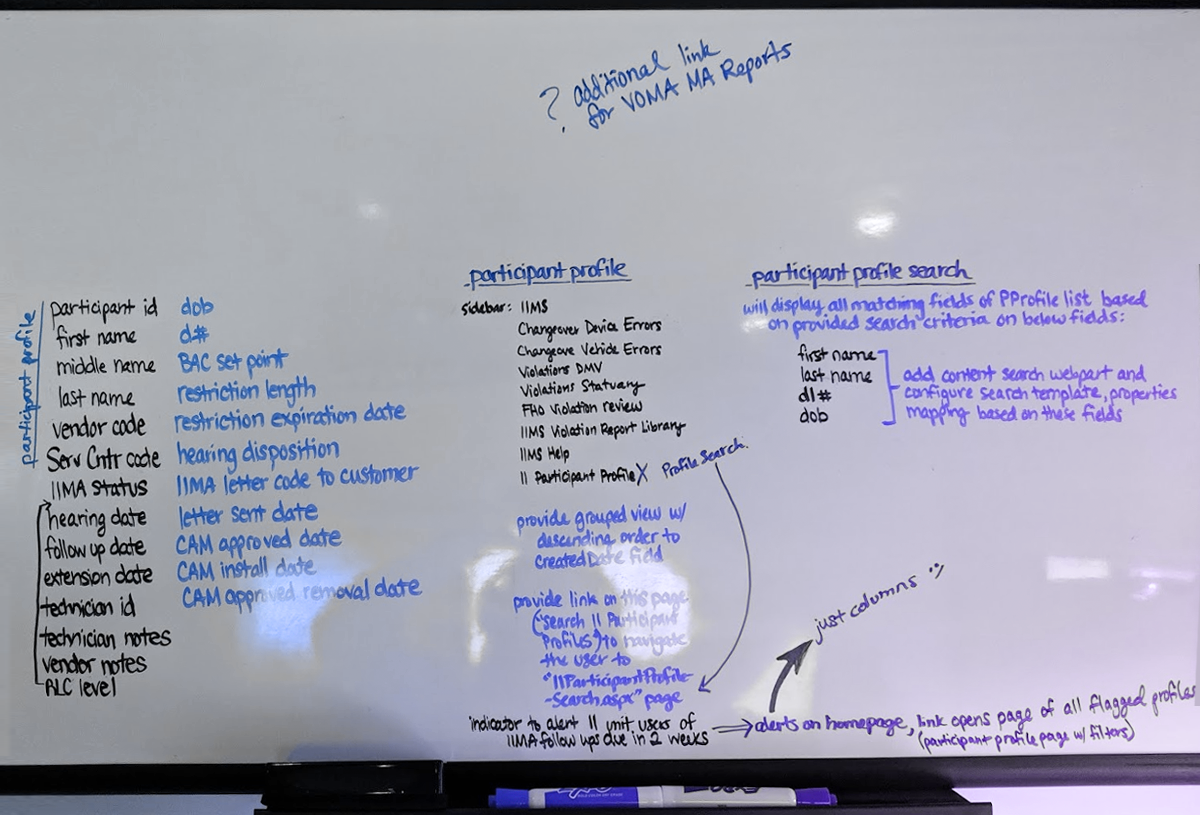 ? additional link
for VOMA MA Reports
participant profile
participant id
first name
middle name
last name
vendor code
Serv Cntr code
IIMA status
hearing date
follow up date
extension date
technician id
technician notes
vendor notes
ALC level
dob
d#
BAC set point
restriction length
restriction expiration date
hearing disposition
IIMA letter code to customer
letter sent date
CAM approved date
CAM install date
CAM approved removal date
participant profile
sidebar: IIMS
Changeover Device Errors
Changeove Vehicle Errors
Violations DMV
Violations Statuary
FHO Violation review
IIMS Violation Report Library
IIMS Help
II Participant Profile X Profile Search.
provide grouped view w/
descending order to
Created Date field
provide link on this page
("search II Participant
Profiles") to navigate
the user to
"IIParticipantProfile
-Search.aspx" page
indicator to alert II unit users of
IIMA follow ups due in 2 weeks
alerts on homepage, link opens page of all flagged profiles
(participant profile page w/ filters)
just columns
participant profile search
will display all matching fields of PProfile list based
on provided search criteria on below fields:
first name
last name
dl#
dob
add content search webpart and
configure search template, properties
mapping based on these fields